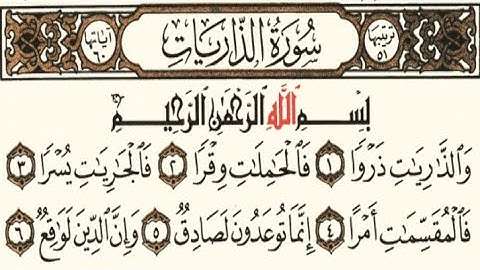 ترتيبها ٥١ سُورَةُ الذَّارِيَاتِ آياتها ٦٠
بِسْمِ اللَّهِ الرَّحْمَٰنِ الرَّحِيمِ
وَالذَّارِيَاتِ ذَرْوًا ١ فَالْحَامِلَاتِ وِقْرًا ٢ فَالْجَارِيَاتِ يُسْرًا ٣
فَالْمُقَسِّمَاتِ أَمْرًا ٤ إِنَّمَا تُوعَدُونَ لَصَادِقٌ ٥ وَإِنَّ الدِّينَ لَوَاقِعٌ ٦